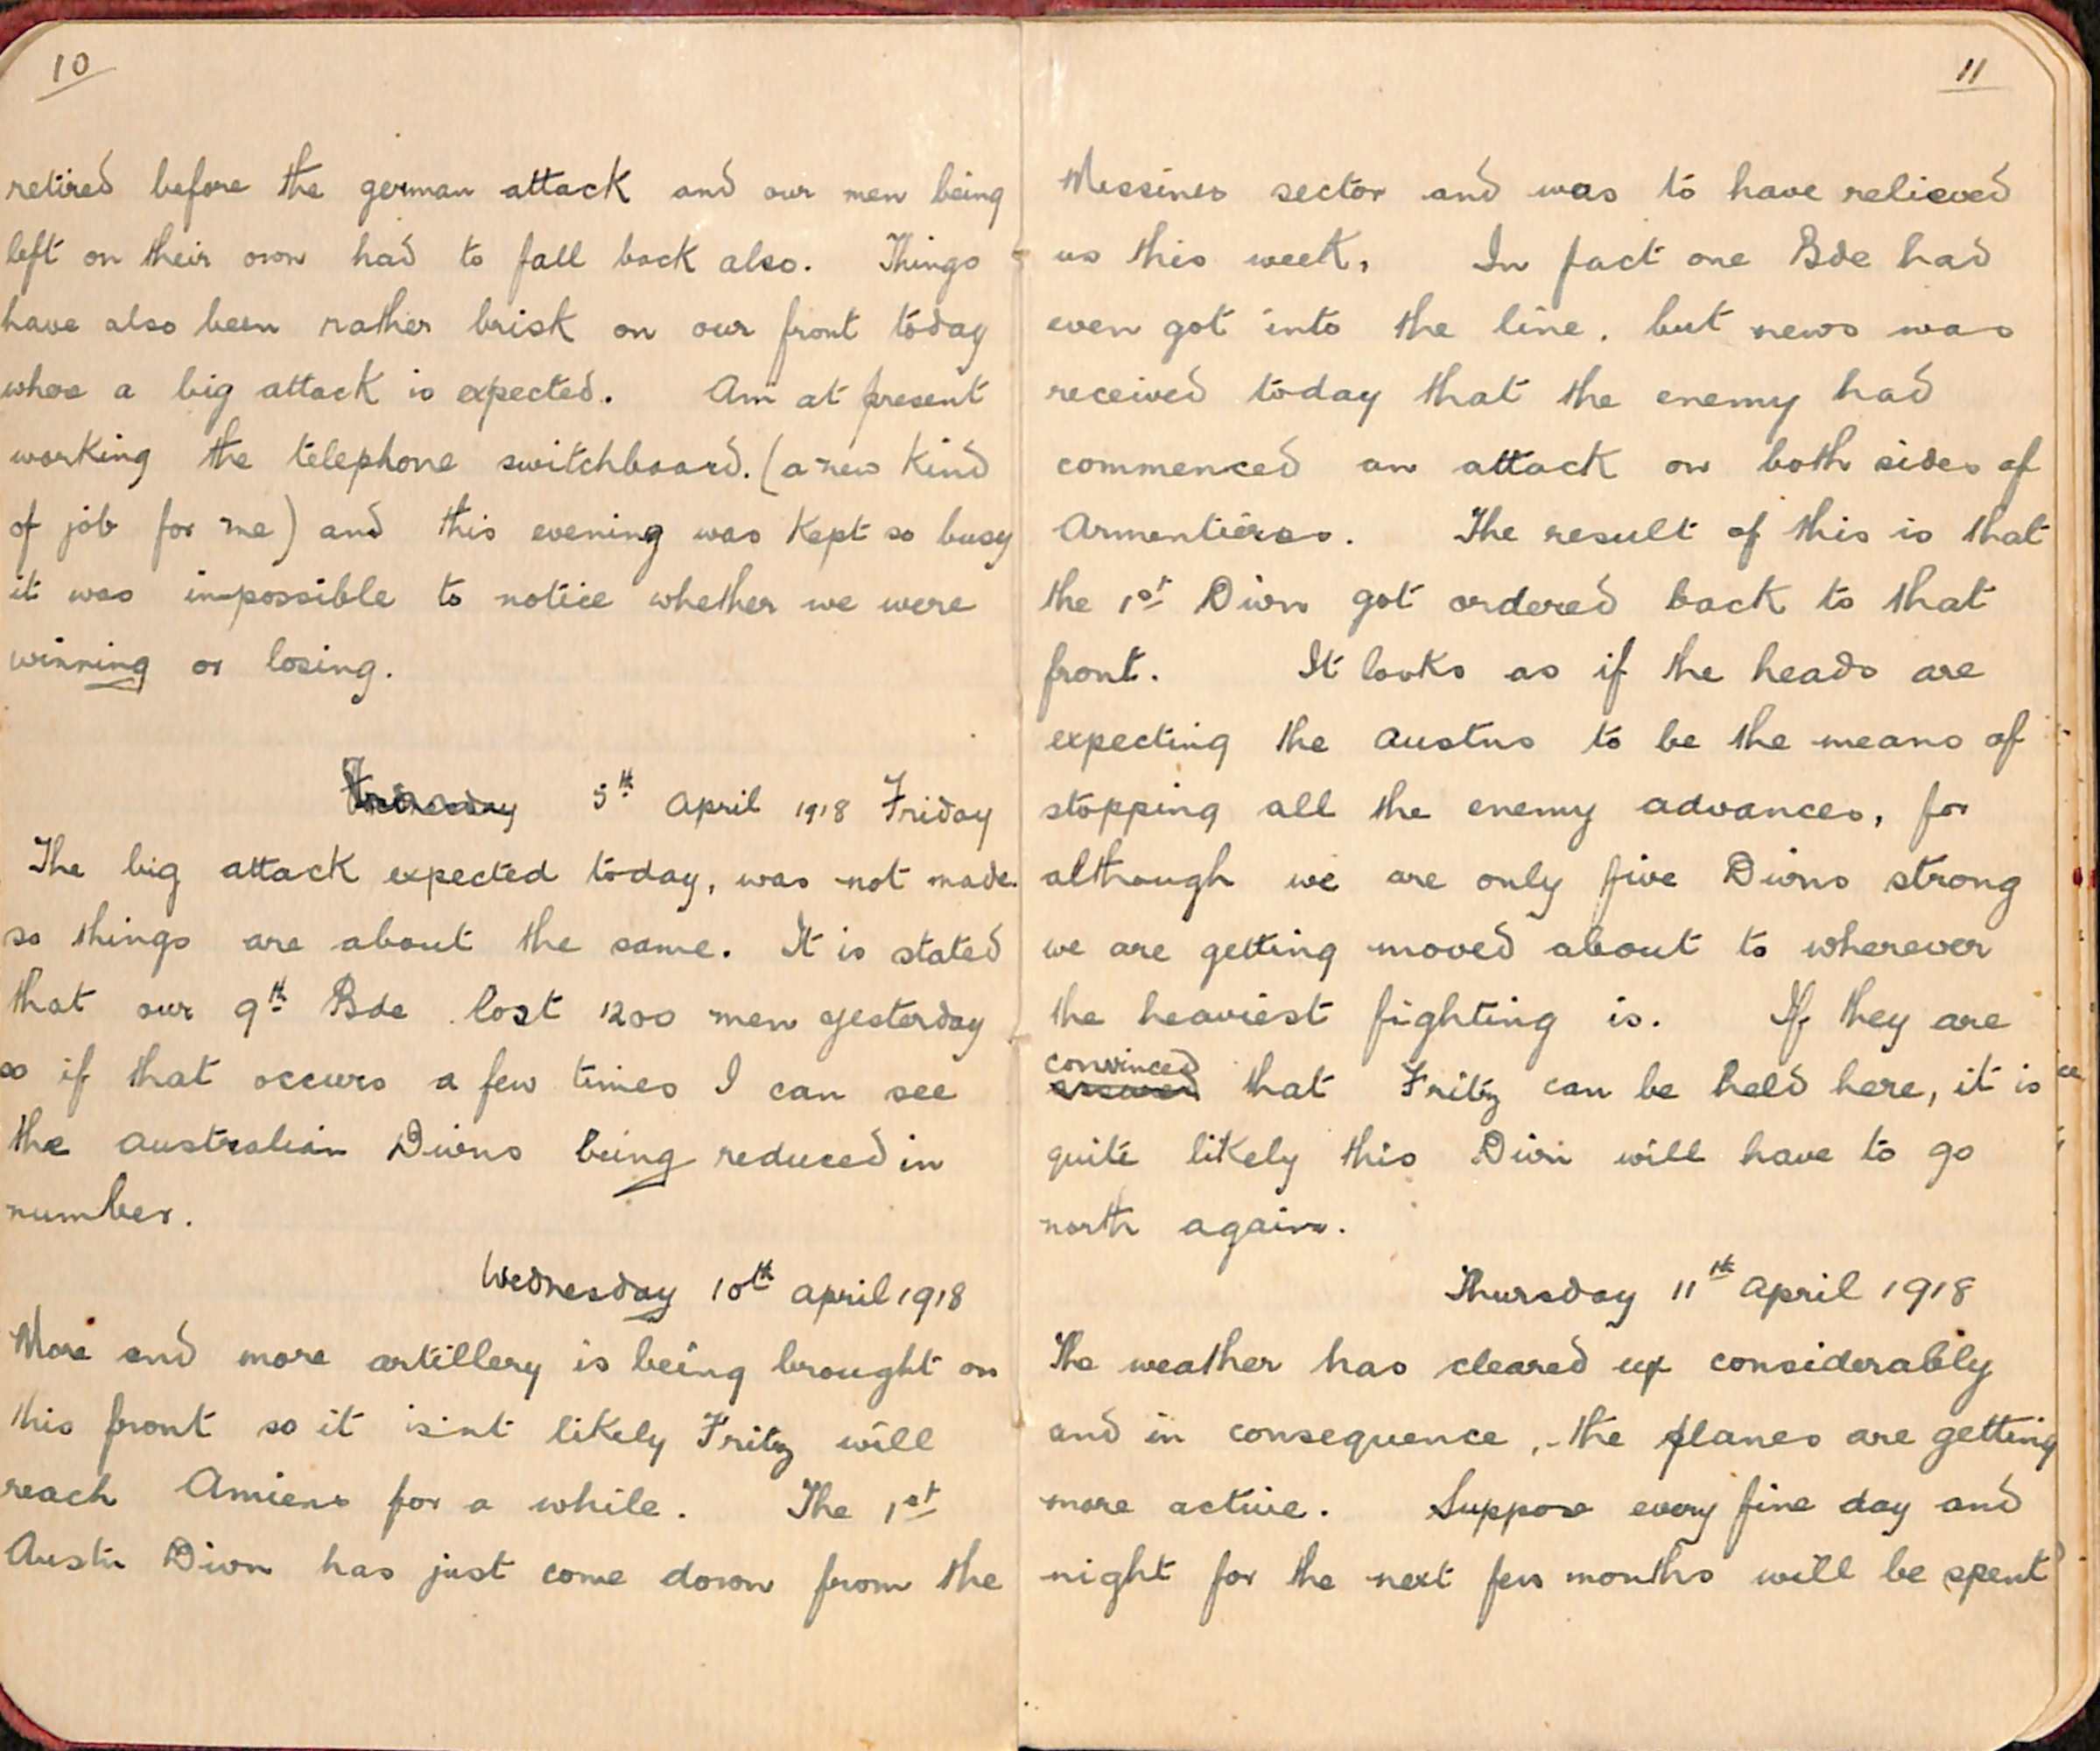 10
retired before the german attack and our men being
left on their own had to fall back also. Things
have also been rather brisk on our front today
where a big attack is expected. Am at present
working the telephone switchboard. (a new kind
of job for me) and this evening was kept so busy
it was impossible to notice whether we were
winning or losing.
5th April 1918 Friday
The big attack expected today, was not made.
so things are about the same. It is stated
that our 9th Bde lost 1200 men yesterday
so if that occurs a few times I can see
the Australian Divns being reduced in
number.
Wednesday 10th April 1918
More and more artillery is being brought on
this front so it isn't likely Fritz will
reach Amiens for a while. The 1st
Austn Divn has just come down from the
11
Messines sector and was to have relieved
us this week. In fact one Bde had
even got into the line, but news was
received today that the enemy had
commenced an attack on both sides of
Armentières. The result of this is that
the 1st Divn got ordered back to that
front. It looks as if the heads are
expecting the Austns to be the means of
stopping all the enemy advances, for
although we are only five Divns strong
we are getting moved about to wherever
the heaviest fighting is. If they are
convinced that Fritz can be held here, it is
quite likely this Divn will have to go
north again.
Thursday 11th April 1918
The weather has cleared up considerably
and in consequence, the planes are getting
more active. Suppose every fine day and
night for the next few months will be spent